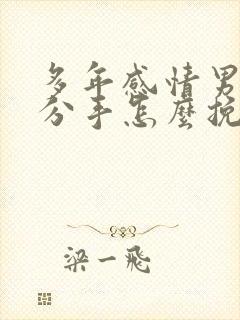 多年感情男
分手怎麼挽
梁一飛